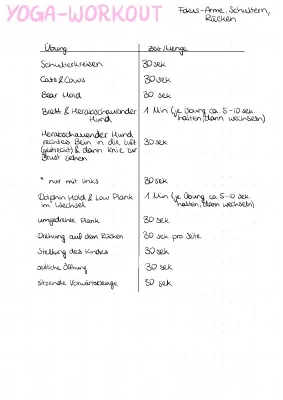 YOGA-WORKOUT
Fokus-Arme, Schultern,
Rücken
Übung Zeit/Menge
Schulterkreisen 30 sek
Cats & Cows 30 sek
Bear Hold 30 sek
Brett & Herabschauender 1 Min (je Übung ca. 5-10 sek
Hund halten, dann wechseln)
Herabschauender Hund,
rechtes Bein in die Luft 30 sek
(gestreckt) & dann Knie zur
Brust ziehen
" nur mit links 30 sek
Dolphin Hold & Low Plank 1 Min (je Übung ca. 5-10 sek
im Wechsel halten, dann wechseln)
umgedrehte Plank 30 sek
Drehung auf dem Rücken 30 sek pro Seite
Stellung des Kindes 30 sek
seitliche Öffnung 30 sek
sitzende Vorwärtsbeuge 30 sek